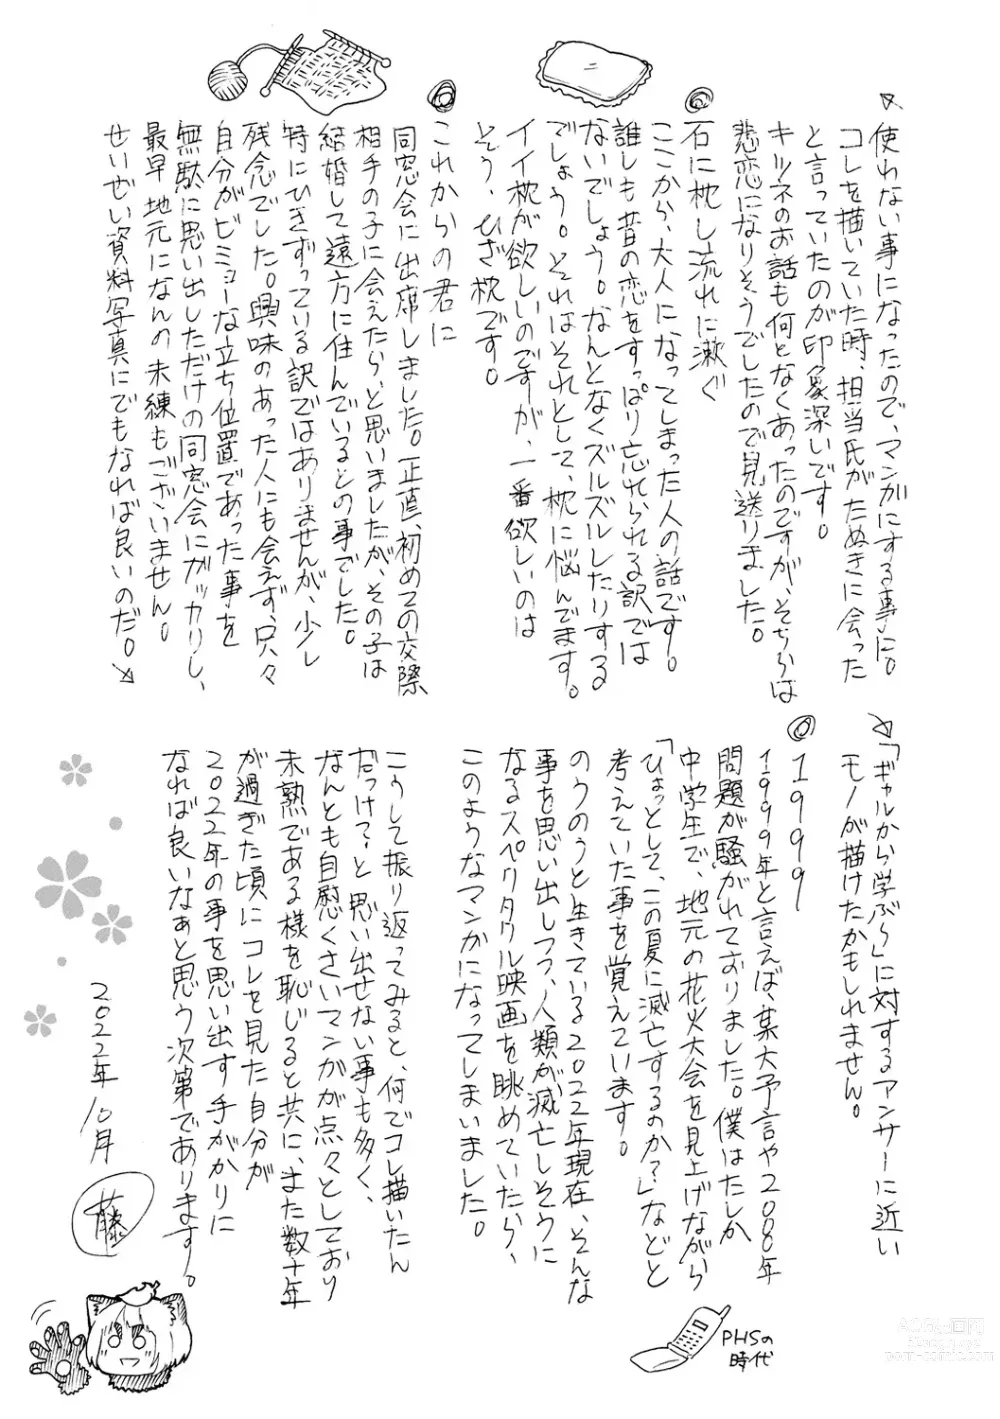 使わない事になったので、マンガにする事に。
コレを描いていた時、担当氏がたぬきに会った
と言っていたのが印象深いです。
キツネのお話も何となくあったのですが、そちらは
悲恋になりそうでしたので見送りました。
石に枕し流れに漱ぐ
ここから、大人になってしまった人の話です。
誰しも昔の恋をすっぱり忘れられる訳では
ないでしょう。なんとなくズルズルしたりする
でしょう。それはそれとして、枕に悩んでます。
イイ枕が欲しいのですが、一番欲しいのは
そう、ひざ枕です。
これからの君に
同窓会に出席しました。正直、初めての交際
相手の子に会えたら、と思いましたが、その子は
結婚して遠方に住んでいるとの事でした。
特にひきずっている訳ではありませんが、少し
残念でした。興味のあった人にも会えず、只々
自分がビミョーな立ち位置であった事を
無駄に思い出しただけの同窓会にガッカリし、
最早地元になんの未練もございません。
せいぜい資料写真にでもなれば良いのだ。
「ギャルから学ぶら」に対するアンサーに近い
モノが描けたかもしれません。
1999
1999年と言えば、某大予言や2000年
問題が騒がれておりました。僕はたしか
中学生で、地元の花火大会を見上げながら
「ひょっとして、この夏に滅亡するのか？」などと
考えていた事を覚えています。
のうのうと生きている2022年現在、そんな
事を思い出しつつ、人類が滅亡しそうに
なるスペクタクル映画を眺めていたら、
このようなマンガになってしまいました。
こうして振り返ってみると、何でコレ描いたん
だっけ？と思い出せない事も多く、
なんとも自慰くさいマンガが点々としており
未熟である様を恥じると共に、また数十年
が過ぎた頃にコレを見た自分が
2022年の事を思い出す手がかりに
なれば良いなぁと思う次第であります。
2022年10月
藤
PHSの
時代